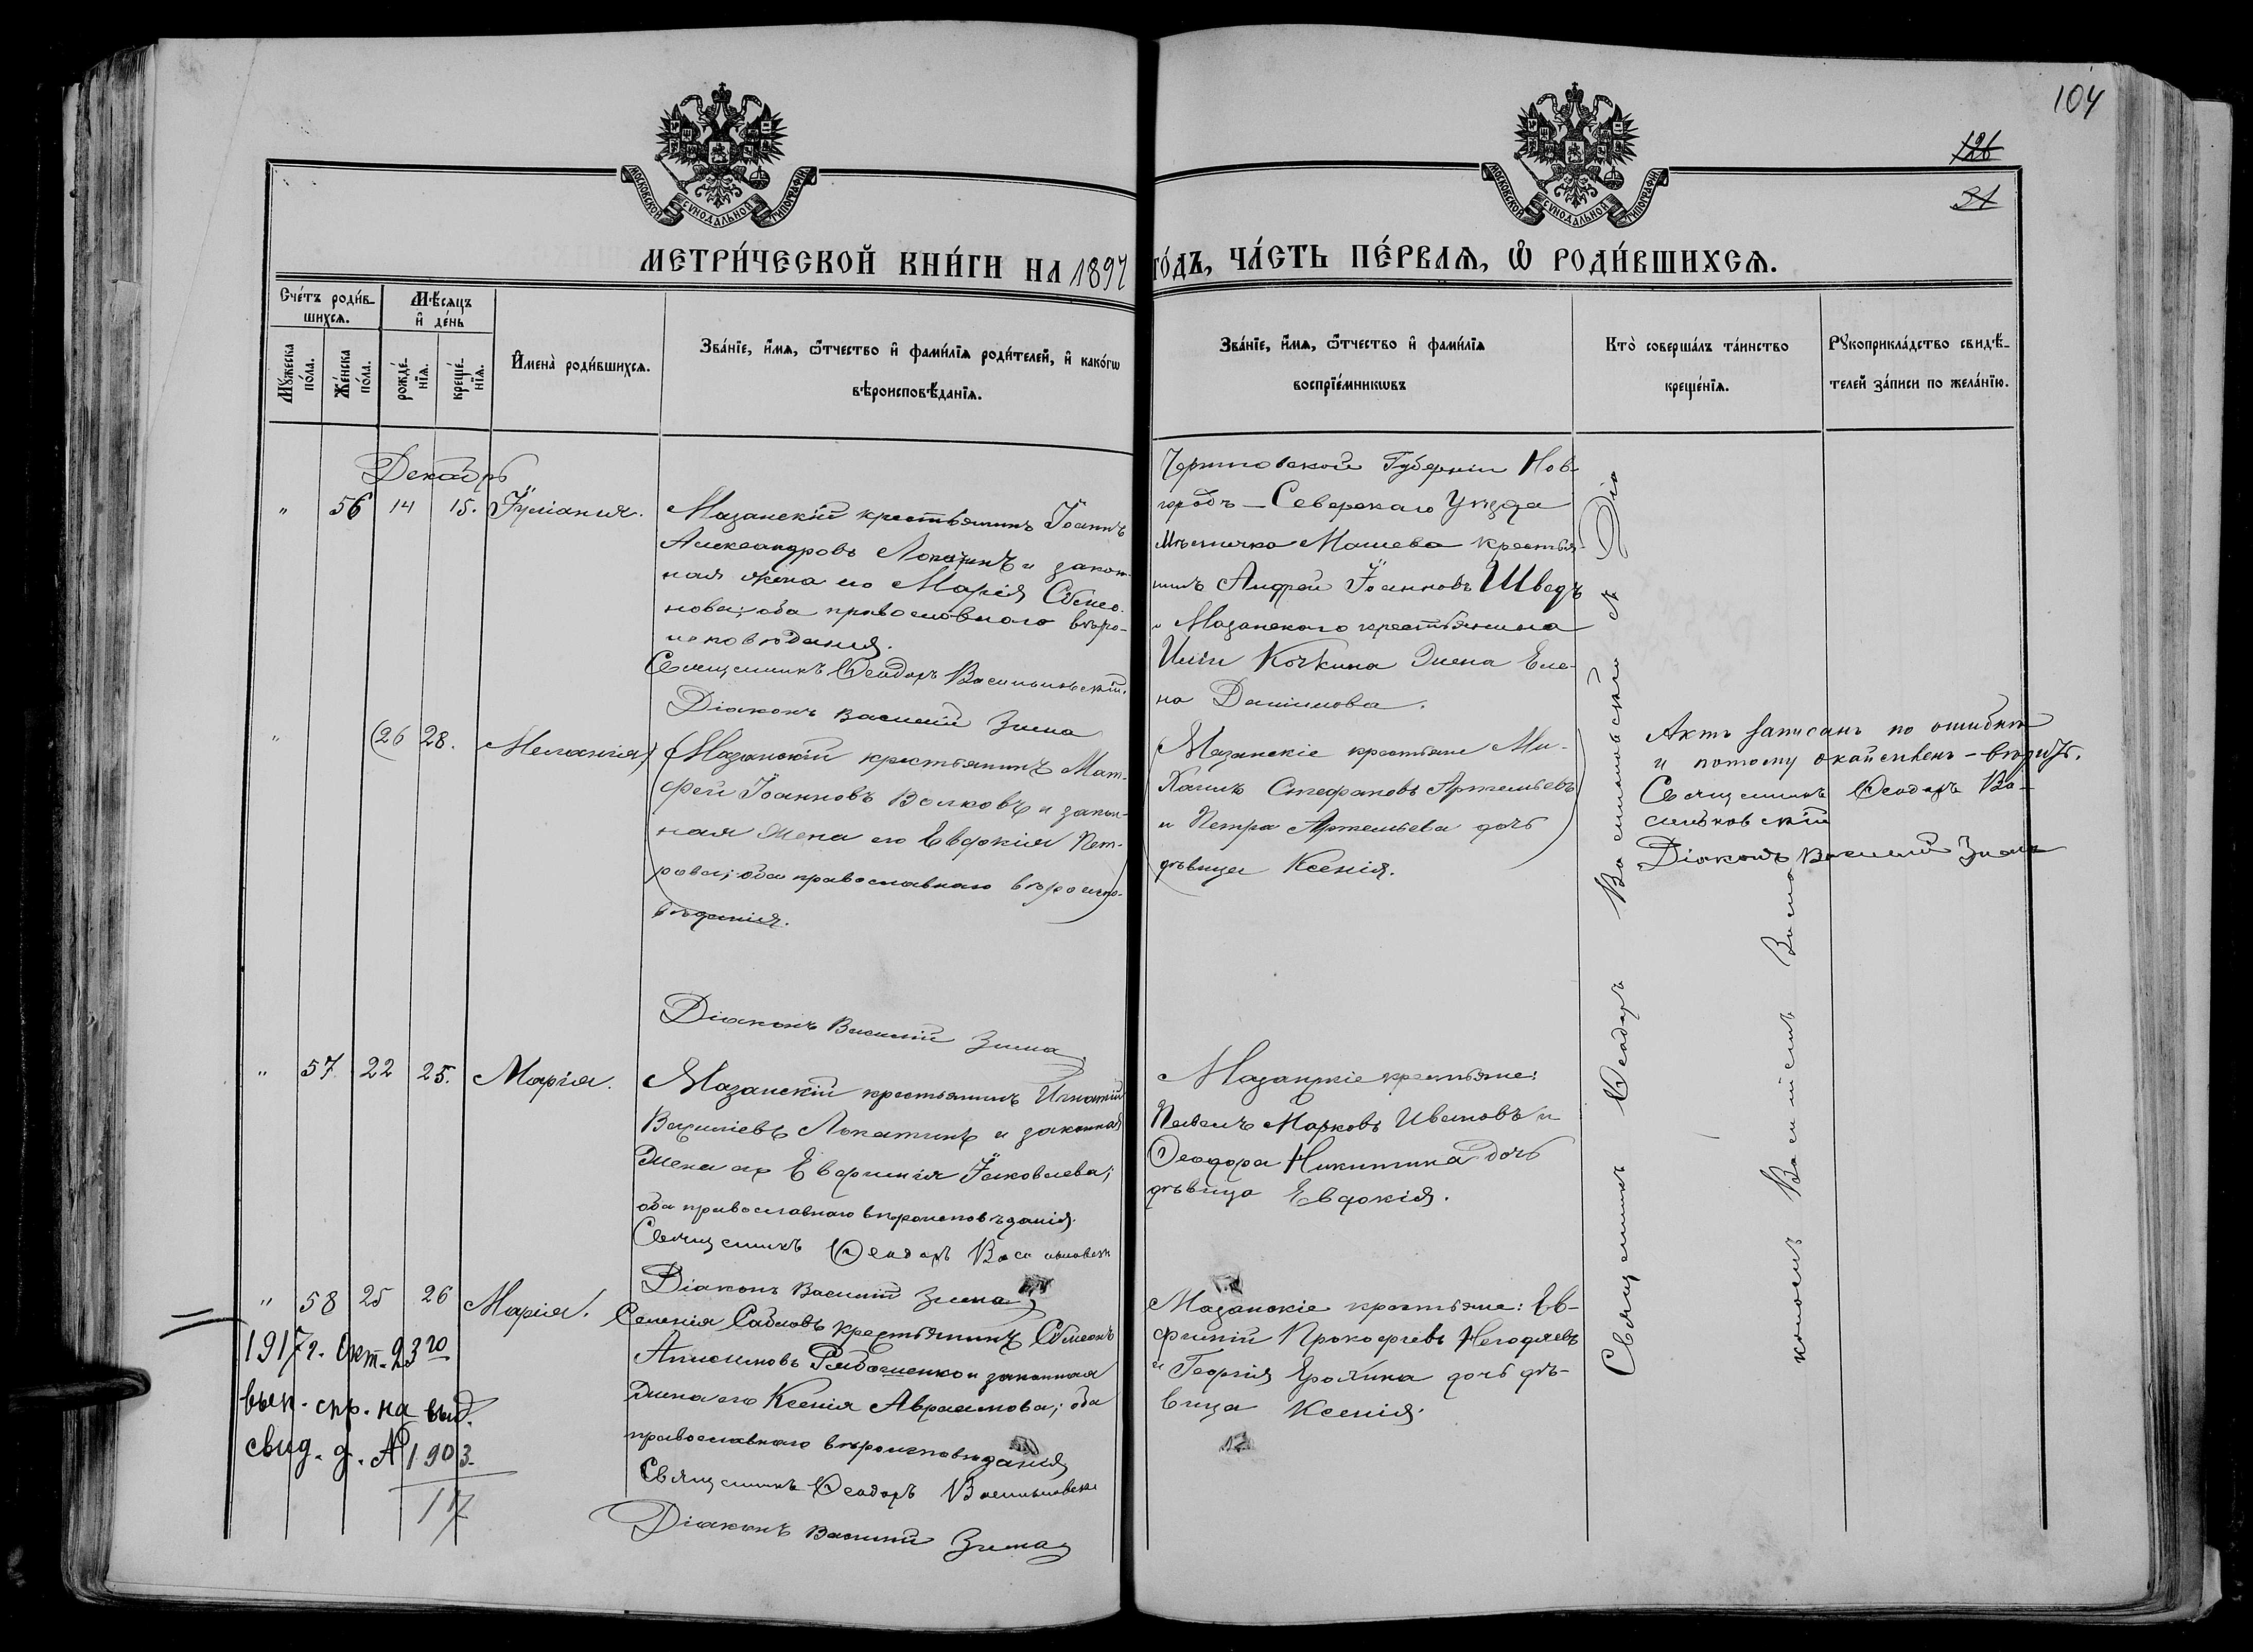 104
126
31
МОСКОВСКОЙ СѴНОДАЛЬНОЙ ТИПОГРАФІИ
МОСКОВСКОЙ СѴНОДАЛЬНОЙ ТИПОГРАФІИ
МЕТРИ́ЧЕСКОЙ КНИ́ГИ НА 1897 ГО́ДЪ, ЧА́СТЬ ПЕ́РВАѦ, Ѡ҆ РОДИ́ВШИХСѦ.
Сче́тъ роди́в-
шихсѧ.
Мꙋ́жеска по́ла.
Же́нска по́ла.
Мѣ́сѧцъ и҆ де́нь
рожде́-
нїѧ.
креще́-
нїѧ.
И҆мена̀ роди́вшихсѧ.
Зва́нїе, и҆́мѧ, ѻ҆́тчество и҆ фами́лїѧ роди́телей, и҆ како́гѡ
вѣроисповѣ́данїѧ.
Зва́нїе, и҆́мѧ, ѻ҆́тчество и҆ фами́лїѧ
воспрїе́мникѡвъ
Кто̀ соверша́лъ та́инство
креще́нїѧ.
Рꙋкоприкла́дство свидѣ́-
телей за́писи по жела́нїю.
Декабрь
" 56 14 15. Іуліанія.
Мазанскій крестьянинъ Іоаннъ
Александровъ Лопатинъ и закон-
ная жена его Марія Сѵмео-
нова; оба православнаго вѣро-
исповѣданія.
Священникъ Ѳеодоръ Васильковскій.
Діаконъ Василій Зима
Черниговской Губерніи Нов-
городъ-Северскаго Уѣзда
мѣстечка Машева крестья-
нинъ Андрей Іоанновъ Шведъ
и Мазанского крестьянина
Иліи Кочкина жена Еле-
на Даніилова.
" (26 28. Меланія)
(Мазанскій крестьянинъ Мат-
фей Іоанновъ Волковъ и закон-
ная жена его Евдокія Пет-
рова; оба православнаго вѣроиспо-
вѣданія.
Діаконъ Василій Зима
Мазанскіе крестьяне Ми-
хаилъ Стефановъ Артемьевъ
и Петра Артемьева дочь
дѣвица Ксенія.
Актъ записанъ по ошибкѣ
и потому
Священникъ Ѳеодоръ Ва-
сильковскій
Діаконъ Василій Зима
" 57 22 25. Марія.
Мазанскій крестьянинъ Игнатій
Василіевъ Лопатинъ и законная
жена его Евфимія Іаковлева;
оба православнаго вѣроисповѣданія.
Священникъ Ѳеодоръ Васильковскій
Діаконъ Василій Зима
Мазанскіе крестьяне:
Павелъ Марковъ Ивановъ и
Ѳеодора Никитина дочь
дѣвица Евдокія.
" 58 25 26 Марія.
Селенія Сабловъ крестьянинъ Сѵмеонъ
Рябошенко и законная
жена его Ксенія Авраамова; оба
православнаго вѣроисповѣданія
Священникъ Ѳеодоръ Васильковскій
Діаконъ Василій Зима
Мазанскіе крестьяне: Ев-
фимій Прокофіевъ Негодяевъ
и Георгія Ерохина дочь дѣ-
вица Ксенія.
1917 г. Окт. 23го
вып. спр. на выд.
свид. д. № 1903
17
Священникъ Ѳеодоръ Васильковскій съ Діа-
кономъ Василіемъ Зимою